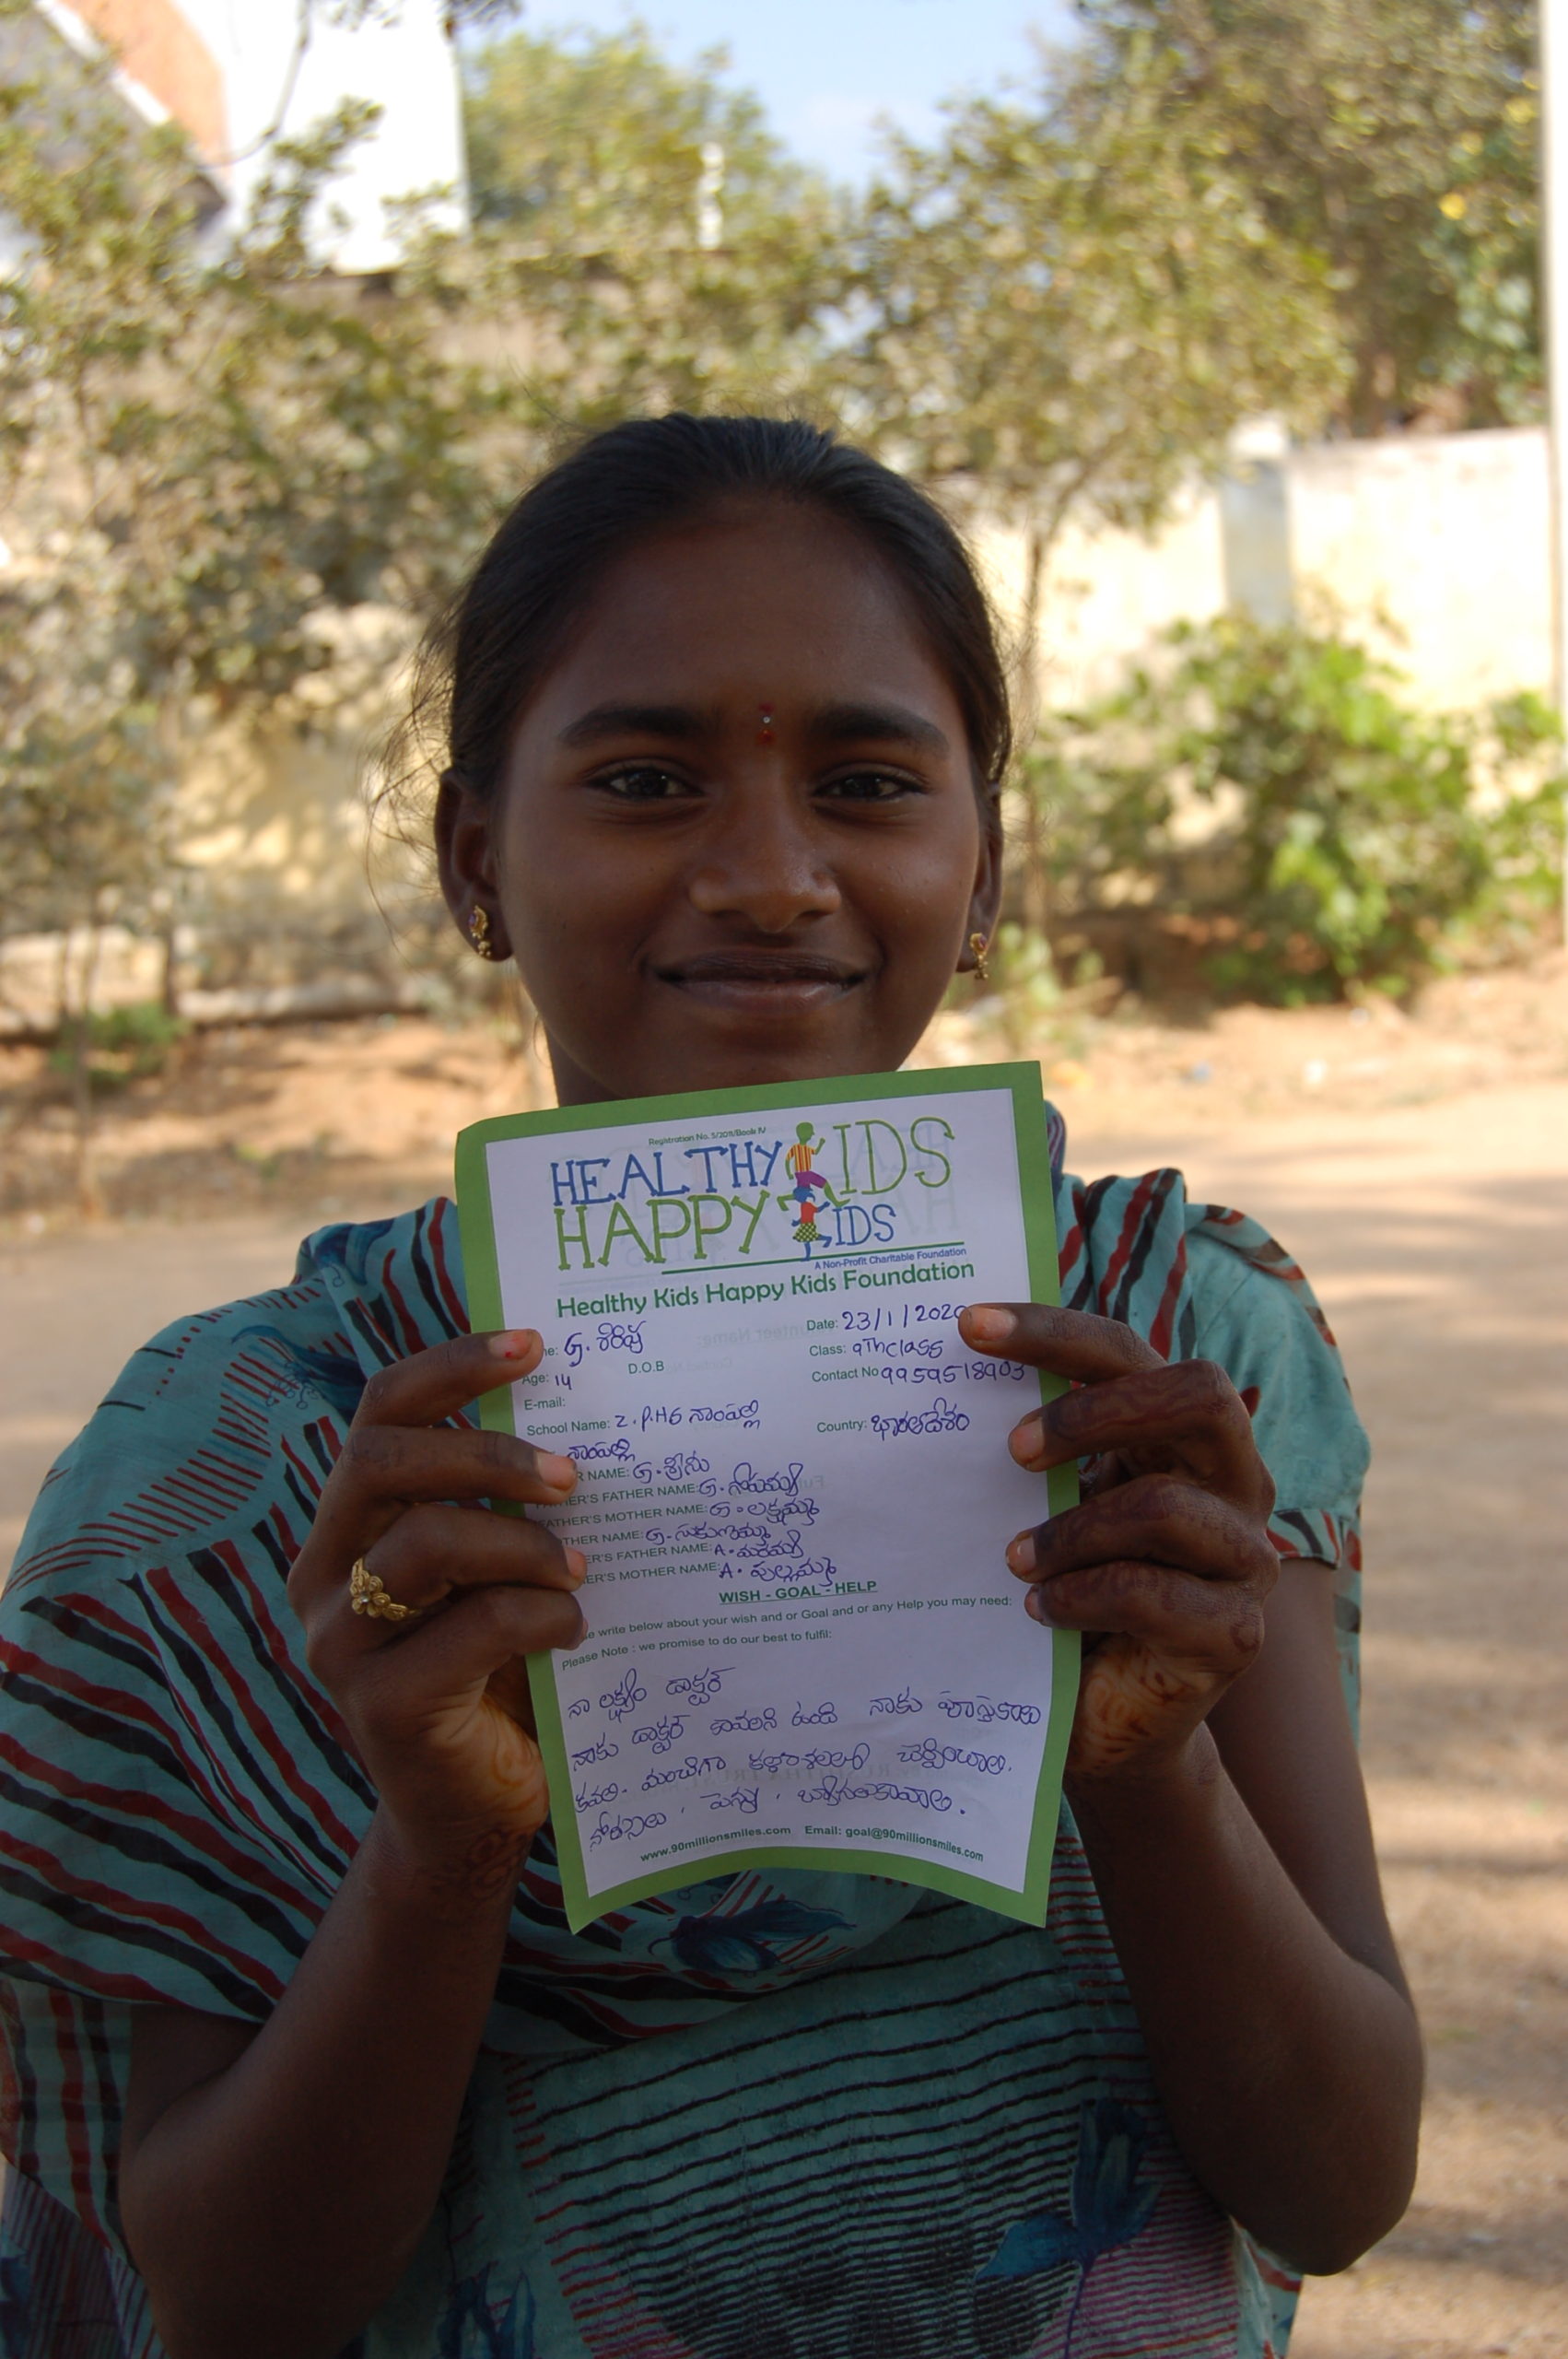 Registration No. 5/2011/Book IV
HEALTHY KIDS
HAPPY KIDS
A Non-Profit Charitable Foundation
Healthy Kids Happy Kids Foundation
G. శిరిష Date: 23/1/2020
Age: 14 D.O.B Class: 9Th class
E-mail: Contact No 9959518903
School Name: Z.P.HS నాంపల్లి Country: భారతదేశం
నాంపల్లి
NAME: G. శ్రీను
FATHER NAME: G.
MOTHER NAME: G. లక్ష్మమ్మ
NAME: G.
FATHER NAME: A.
MOTHER NAME: A. పుల్లమ్మ
WISH - GOAL - HELP
write below about your wish and or Goal and or any Help you may need:
Please Note : we promise to do our best to fulfil:
నా లక్ష్యం డాక్టర్
నాకు డాక్టర్ కావలని ఉంది నాకు పూస్తకాలు
కవలి. మంచిగా చేర్పించాలి.
పెన్ను,
www.90millionsmiles.com Email: goal@90millionsmiles.com